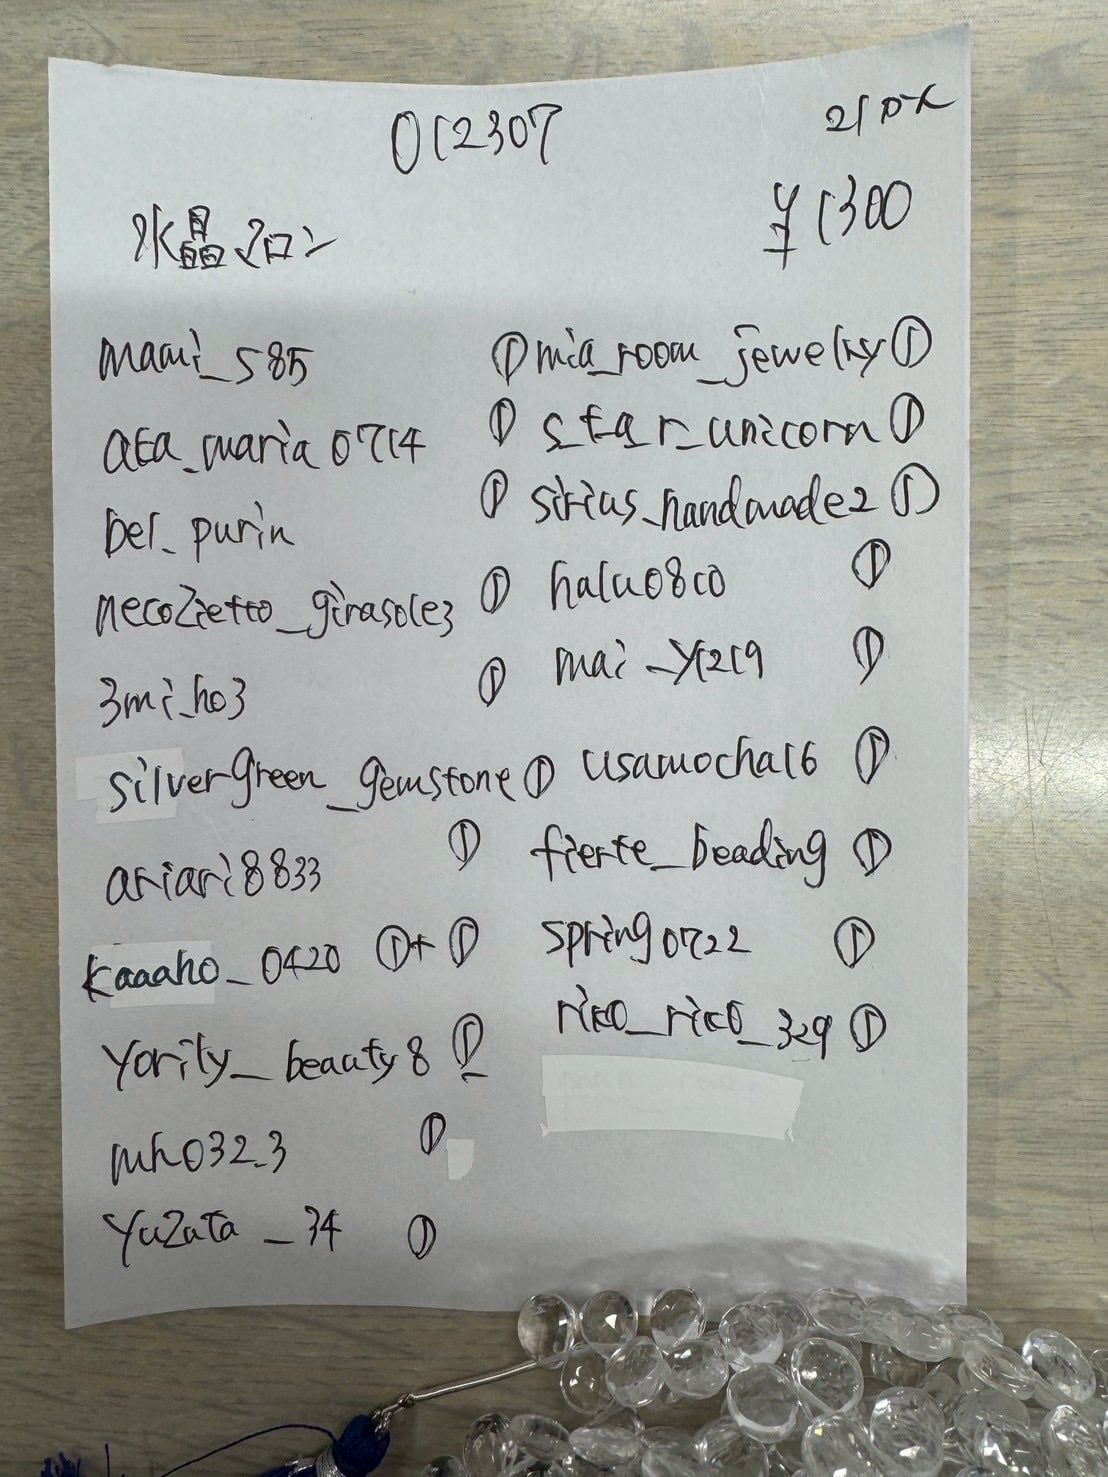 012307
21px
水晶マロン
¥1300
mami_585 ①
ata_maria0714 ①
bel_purin ①
necozietto_girasole3 ①
3mi_ho3 ①
silvergreen_gemstone ①
ariari8833 ①
kaaaho_0420 ①+①
yority_beauty8 ①
mh032_3 ①
yuzuta_34 ①
mia_room_jewelry ①
s_t_a_r_unicorn ①
sirius_handmade2 ①
halu0810 ①
mai_y1219 ①
usamocha16 ①
fierte_beading ①
spring0722 ①
rico_rico_329 ①